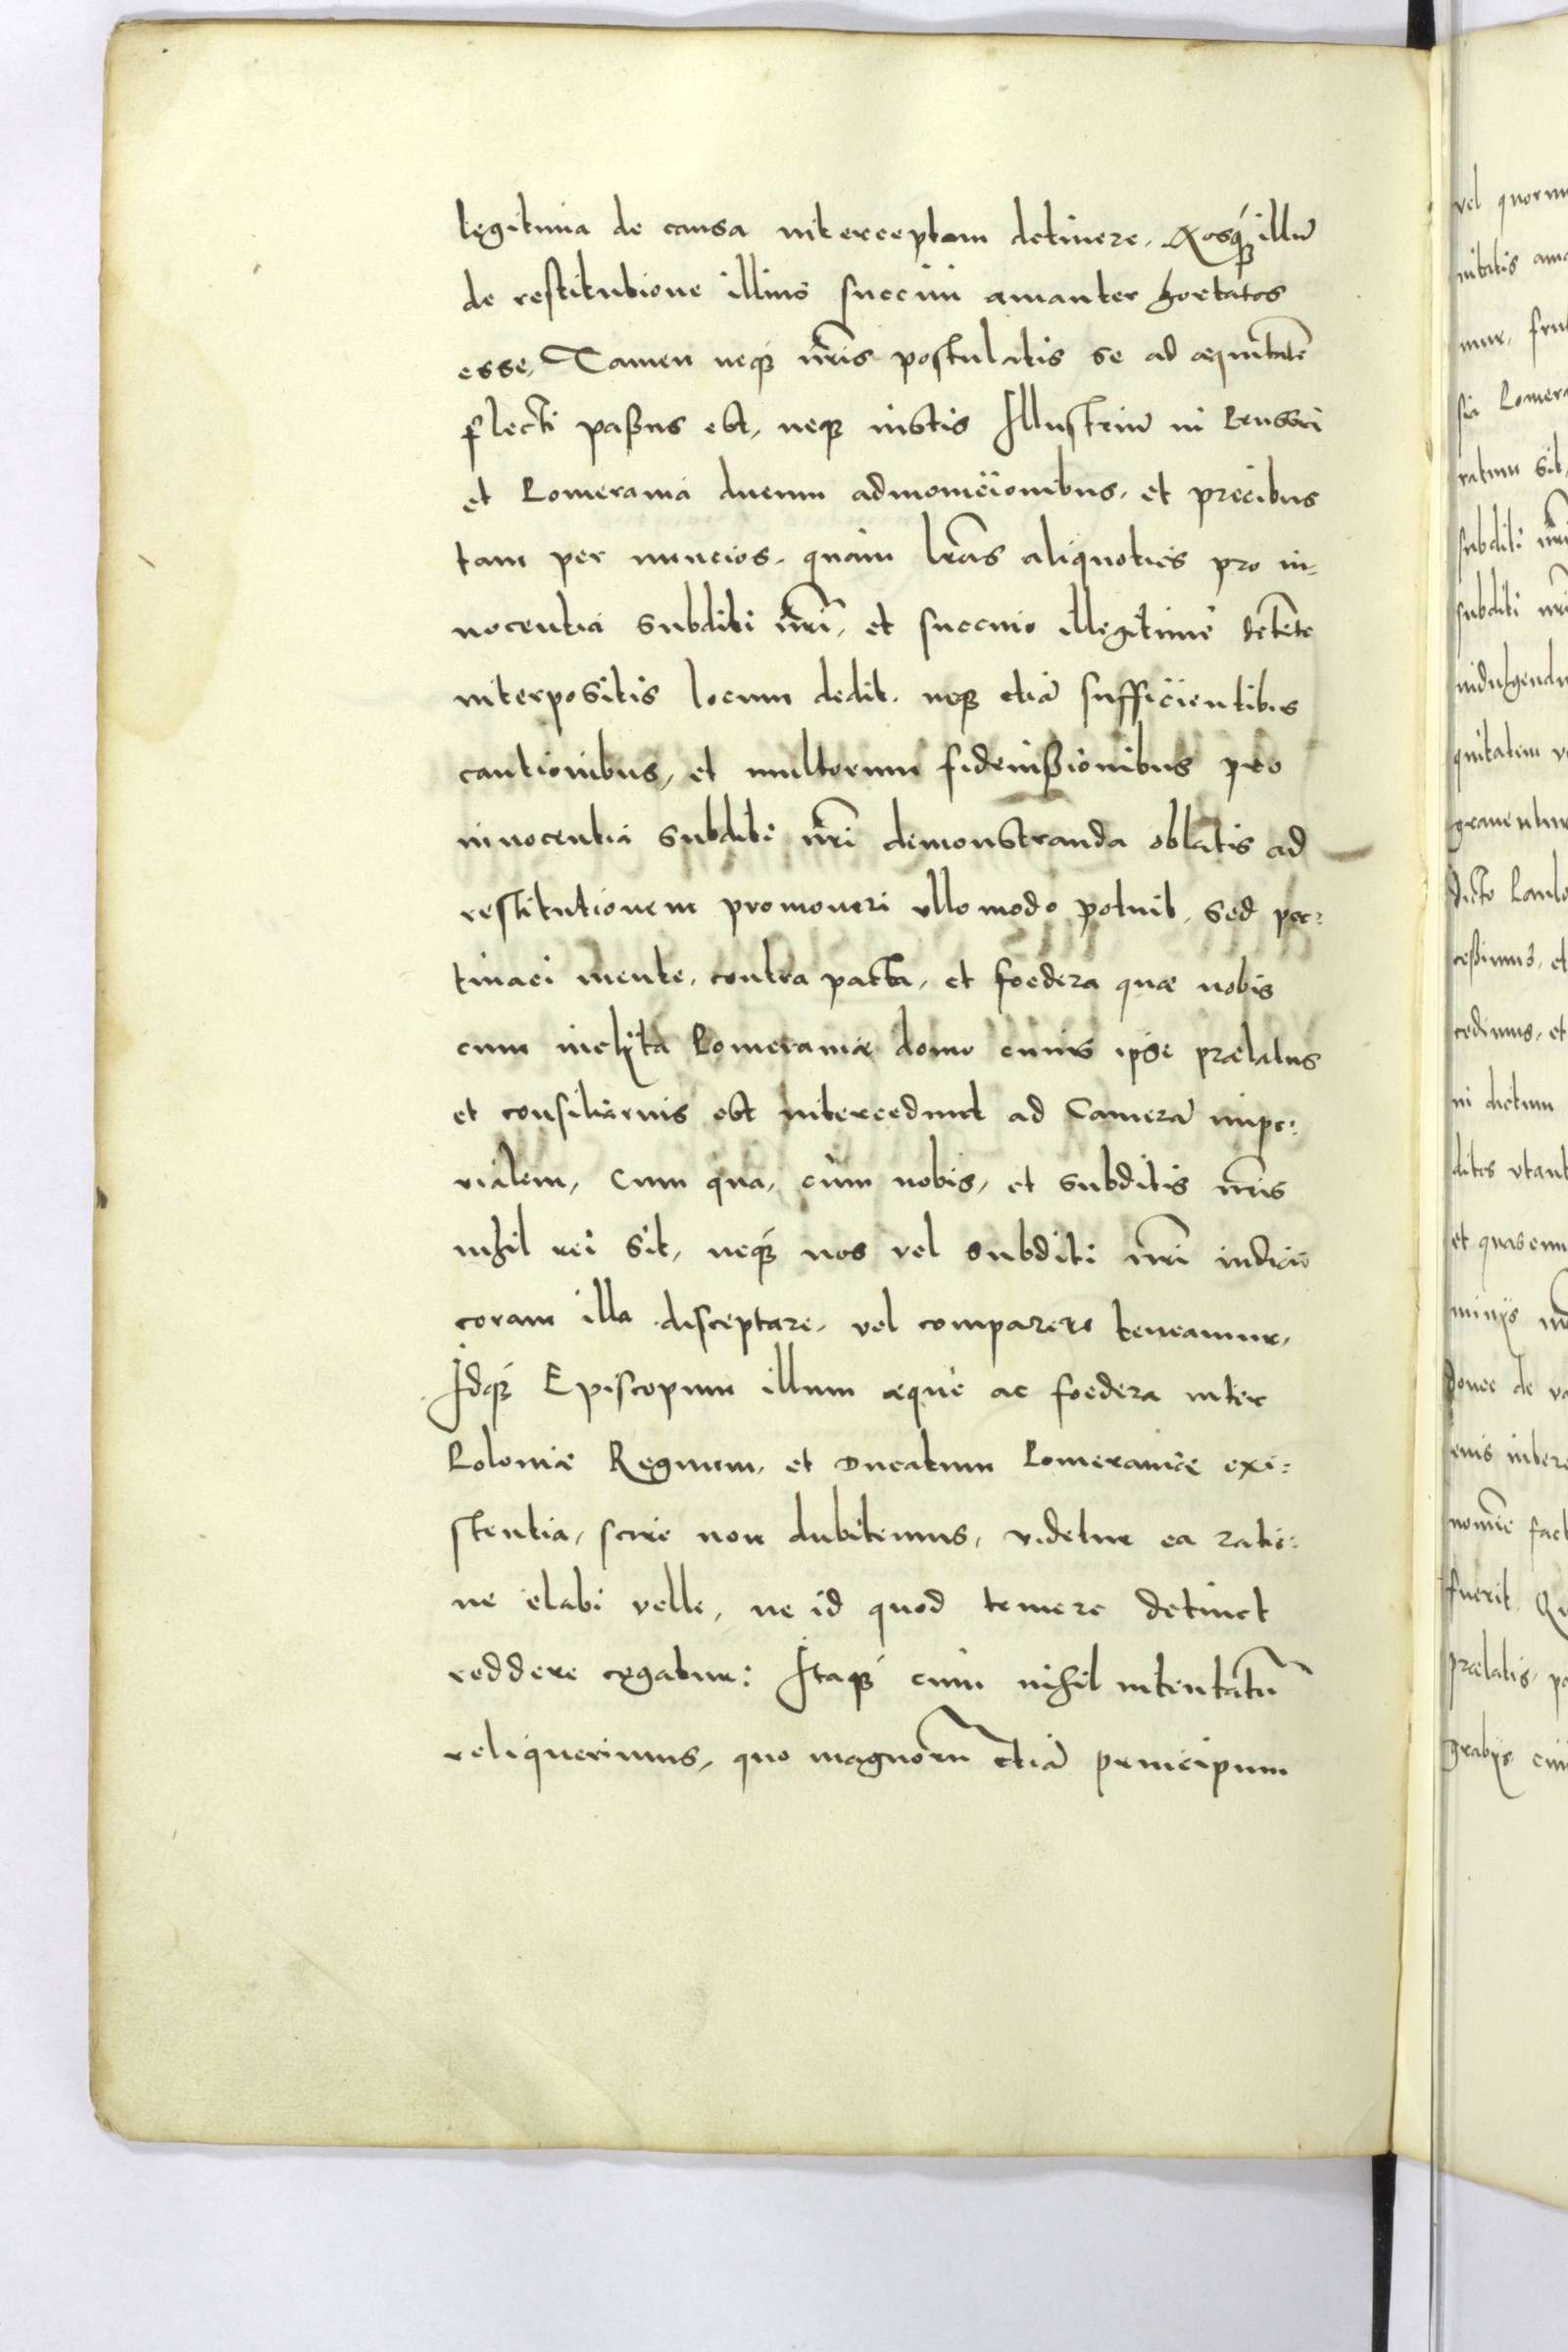 legitima de causa interceptam detinere. Nosq́ illū
de restitutione illius succini amanter hortatos
esse, Tamen neq́ nr̃is postulatis se ad æquitatẽ
flecti paßus est, neq iustis Illustriũ in Prussia
et Pomerania ducum admonicionibus, et precibus
tam per nuncios, quàm lr̃as aliquoties pro in-
nocentia subditi nr̃i, et succino illegitimè detento
interpositis locum dedit. neq etiã sufficientibus
cautionibus, et multorum fideiußionibus pro
innocentia subditi nr̃i demonstranda oblatis ad
restitutionem promoueri vllo modo potuit, sed per:
tinaci mente, contra pacta, et foedera quæ nobis
cum inclÿta Pomeraniæ domo cuius ipse prælatus
et consiliarius est intercedunt ad Camerã impe:
rialem, cum qua, cùm nobis, et subditis nr̃is
nihil rei sit, neq́ nos vel subditi nr̃i iudicio
coram illa disceptare, vel comparere teneamur,
Idq́ Episcopum illum æque ac foedera inter
Poloniæ Regnum, et Ducatum Pomeraniæ exi:
stentia, scire non dubitemus, videtur ea ratio:
ne elabi velle, ne id quod temere detinet
reddere cogatur: Itaq́ cùm nihil intentatũ
reliquerimus, quo magnorũ etiã principum
vel quorum
nitatis
mur,
sia Pomera
ratum sit,
subditi nr̃i
subditi nr̃i
indulgendu
quitatem
grauentur
dicto
ceßimus, et
cedimus, et
in dictum
dites vtant
et quascun
minijs
donec de
nomĩe fact
fuerit,
prælatis,